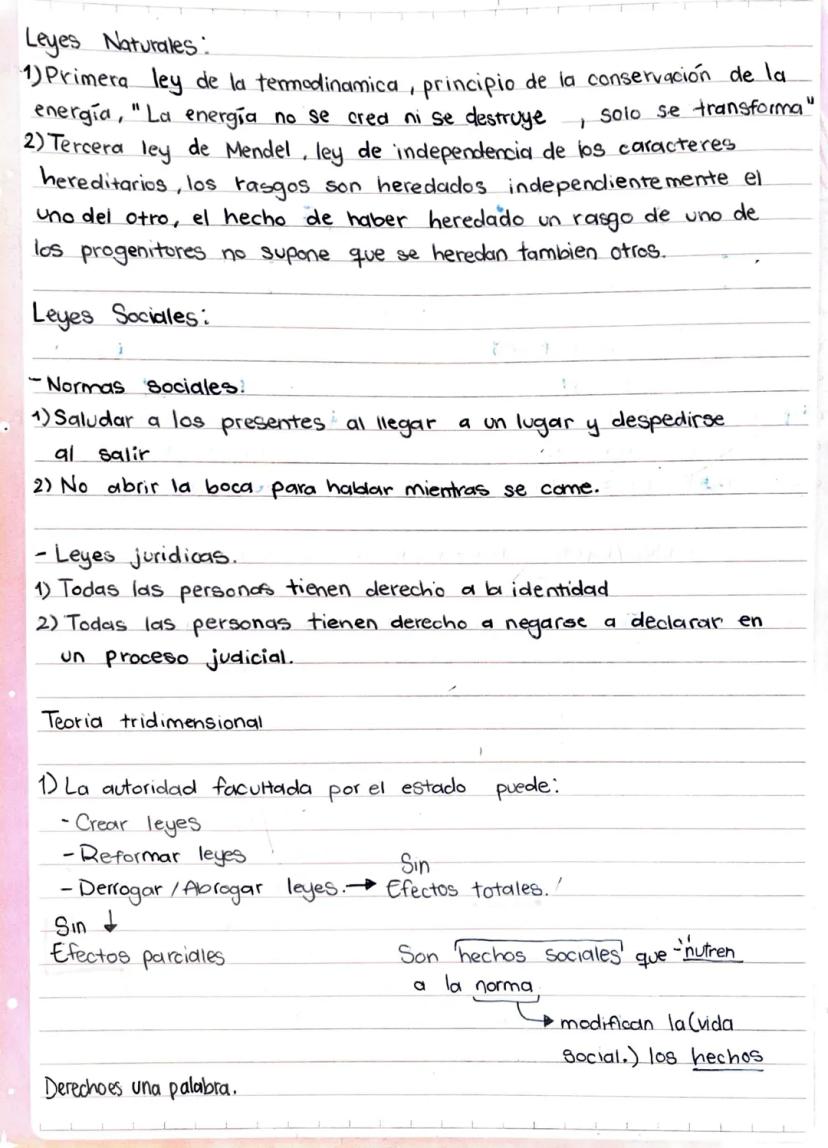 Leyes Naturales:
1) Primera ley de la termodinamica, principio de la conservación de la
energía, "La energía no se crea ni se destruye , solo se transforma"
2) Tercera ley de Mendel, ley de independencia de los caracteres
hereditarios, los rasgos son heredados independientemente el
uno del otro, el hecho de haber heredado un rasgo de uno de
los progenitores no supone que se heredan tambien otros.
Leyes Sociales:
- Normas sociales:
1) Saludar a los presentes al llegar a un lugar y despedirse
al salir
2) No abrir la boca para hablar mientras se come.
- Leyes juridicas.
1) Todas las personas tienen derecho a la identidad
2) Todas las personas tienen derecho a negarse a declarar en
un proceso judicial.
Teoria tridimensional
1) La autoridad facultada por el estado puede:
- Crear leyes
- Reformar leyes
- Derrogar / Abrogar leyes. → Sin Efectos totales.
Sin ↓
Efectos parciales
Son hechos sociales que nutren
a la norma
→ modifican la (vida
social.) los hechos
Derecho es una palabra.